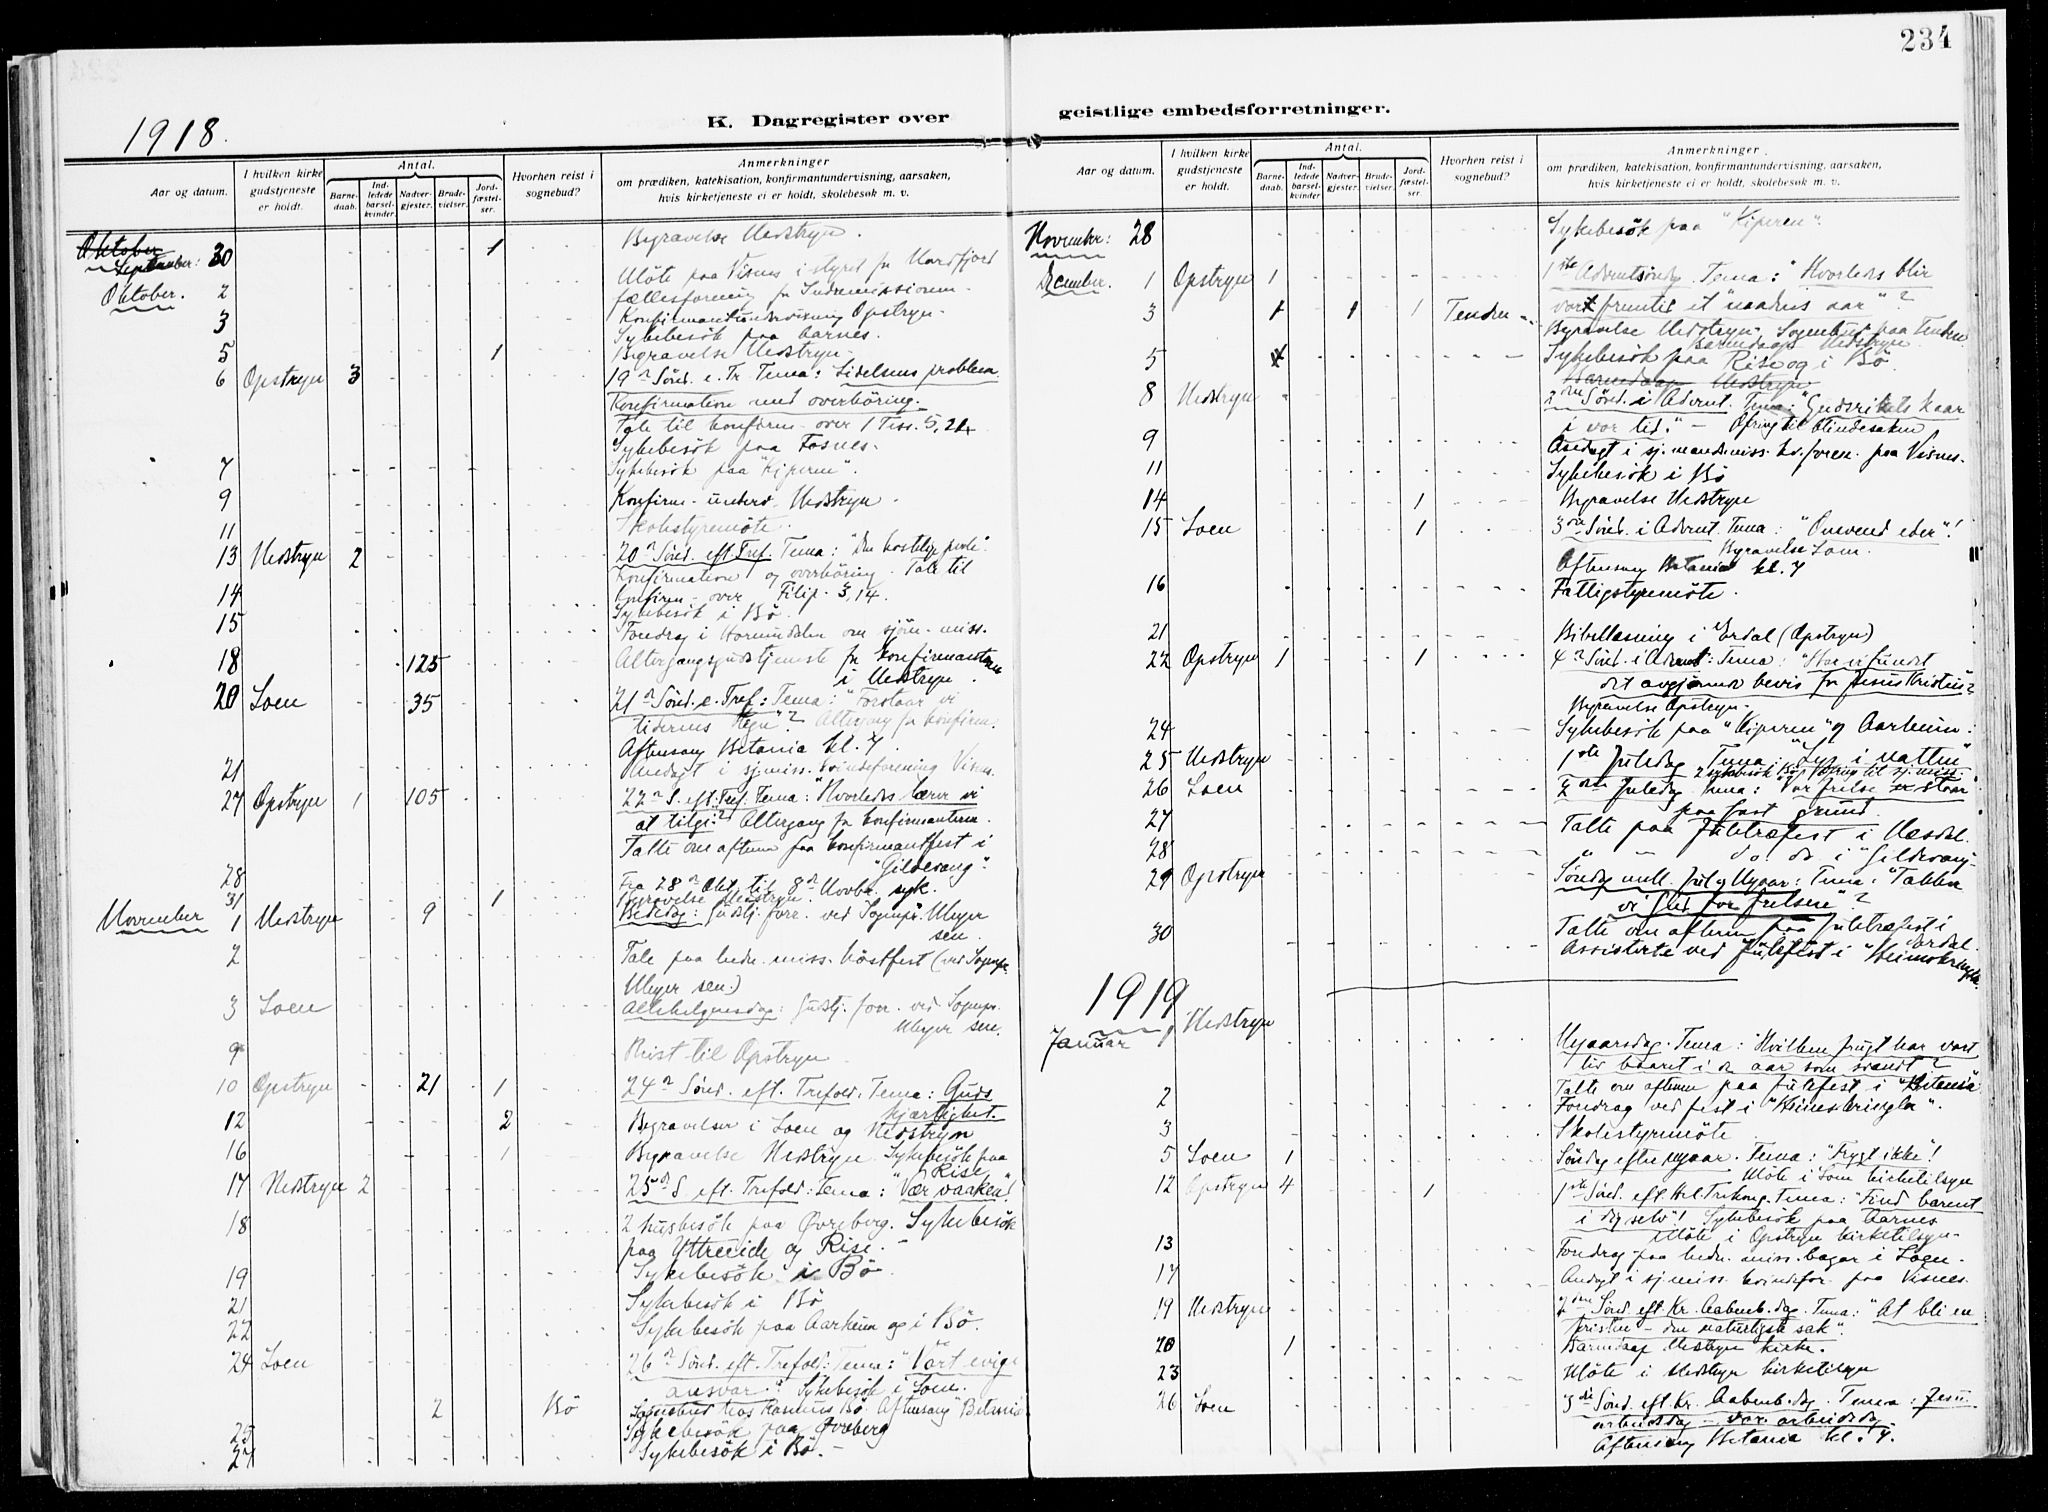 234
1918.
K. Dagregister over geistlige embedsforretninger.
Aar og datum.
I hvilken kirke gudstjeneste er holdt.
Antal.
Barnedaab.
Indledede barselkvinder.
Nadvergjester.
Brudevielser.
Jordfæstelser.
Hvorhen reist i sognebud?
Anmerkninger
om prædiken, katekisation, konfirmantundervisning, aarsaken,
hvis kirketjeneste ei er holdt, skolebesøk m. v.
Oktober
September: 30 1 Begravelse Nedstryn.
Oktober. 2 Möte paa Visnes i styret for Nordfjord
fællesforening for Indremissionen.
3 Konfirmantundervisning Opstryn.
Sykebesök paa Aarnes.
5 1 Begravelse Nedstryn.
6 Opstryn 3 19n Sönd. e. Tr. Tema: Lidelsens problem.
Konfirmation med overhöring.
Tale til konfirm. over 1 Tess. 5, 24
Sykebesök paa Fosnes.
7 Sykebesök paa "Kiperen".
9 Konfirm. underv. Nedstryn.
11 Skolestyremöte.
13 Nedstryn 2 20n Sönd. eft. Tref. Tema: "Den kostelige perle".
Konfirmation og overhöring. Tale til
konfirm. over Filip. 3,14.
14 Sykebesök i Bö.
15 Foredrag i Hornindalen om sjöm. miss.
18 125 Altergangsgudstjeneste for konfirmanterne
i Nedstryn.
20 Loen 35 21n Sönd. e. Tref: Tema: "Forstaar vi
tidernes tegn"? Altergang for konfirm.
Aftensang Betania kl. 7.
21 Andagt i sj.miss. kvindeforening Visnes.
27 Opstryn 1 105 22n S. eft. Tref. Tema: "Hvorledes lærer vi
at tilgi"? Altergang for konfirmanterne.
Talte om aftenen paa konfirmantfest i
"Gildevang".
28 Fra 28n Okt. til 8n Novbr. syk.
31 1 Begravelse Nedstryn.
November 1 Nedstryn 9 Bededag: Gudstj. forr. ved Sognepr. Meyer
sen.
2 Tale paa hedn. miss. höstfest (ved Sognepr.
Meyer sen.)
3 Loen Allehelgensdag: Gudstj. forr. ved Sognepr.
Meyer sen.
9 Reist til Opstryn
10 Opstryn 21 1 24n Sönd. eft. Trefold. Tema: Guds
kjærlighet.
12 2 Begravelser i Loen og Nedstryn
16 1 Begravelse Nedstryn. Sykebesök paa
Rise
17 Nedstryn 2 25n S. eft. Trefold: Tema: "Vær vaaken!"
18 2 husbesök paa Övreberg. Sykebesök
paa Yttreeide og Rise.
19 Sykebesök i Bö
21 Sykebesök i Bö
22 Sykebesök paa Aarheim og i Bö.
24 Loen 26n Sönd. eft. Trefold: Tema: "Vort evige
ansvar". Sykebesök i Loen.
2 Bö Sognebud hos Rasmus Bö. Aftensang "Betania
25 Sykebesök paa Övreberg
27 Sykebesök i Bö.
Aar og datum.
I hvilken kirke gudstjeneste er holdt.
Antal.
Barnedaab.
Indledede barselkvinder.
Nadvergjester.
Brudevielser.
Jordfæstelser.
Hvorhen reist i sognebud?
Anmerkninger.
om prædiken, katekisation, konfirmantundervisning, aarsaken,
hvis kirketjeneste ei er holdt, skolebesøk m. v.
November: 28 Sykebesök paa "Kiperen".
December. 1 Opstryn 1 1ste Adventsöndag. Tema: "Hvorledes blir
vor fremtid et "naadens aar"?
3 1 1 1 Tenden Begravelse Nedstryn. Sognebud paa Tenden.
Barnedaap Nedstryn.
5 Sykebesök paa Rise og i Bö.
Barnedaap Nedstryn
8 Nedstryn 2den Sönd. i Advent. Tema: "Gudsrikets kaar
i vor tid." - Ofring til blindesaken
9 Andagt i sj.mandsmiss. kv.foren. paa Visnes.
11 Sykebesök i Bö
14 1 Begravelse Nedstryn
15 Loen 1 3die Sönd. i Advent. Tema: "Omvend eder"!
Begravelse Loen.
Aftensang Betania kl. 7
16 Fattigstyremöte.
21 Bibellæsning i Erdal (Opstryn)
22 Opstryn 1 1 4n Sönd. i Advent: Tema: "Har vi fundet
det avgjörende bevis for Jesus Kristus"?
Begravelse Opstryn.
24 Sykebesök paa "Kiperen" og Aarheim.
25 Nedstryn 1ste Juledag Tema: "Lys i natten"
2 sykebesök i Bö. Ofring til sj.miss.
26 Loen 2den Juledag Tema: "Vor frelse er staar
paa fast grund.
27 Talte paa juletræfest i Næsdal.
28 do. do i "Gildevang".
29 Opstryn Söndag mell. Jul og Nyaar: Tema: "Takker
vi Gud for frelsen"?
Talte om aftenen paa juletræfest i
Erdal.
30 Assisterte ved Julefest i "Heimskringla".
1919
Januar 1 Nedstryn Nyaarsdag. Tema: "Hvilken frugt har vort
liv baaret i de aar som svandt?
Talte om aftenen paa julefest i "Betania"
2 Foredrag ved fest i "Heimskringla".
3 Skolestyremöte
5 Loen 1 Söndag efter nyaar. Tema: "Frygt ikke"!
Möte i Loen kirketilsyn
12 Opstryn 4 1 1ste Sönd. eft. Hel. Trekong. Tema: "Find barnet
i dig selv"! Sykebesök paa Aarnes
Möte i Opstryn kirketilsyn.
13 Foredrag paa hedn. miss. bazar i Loen.
17 Andagt i sj.miss. kvindefor. paa Visnes.
19 Nedstryn 2den Sönd. eft. Kr. Aabenb. dag. Tema: "At bli en
kristen - den naturligste sak".
20 1 Barnedaap Nedstryn kirke.
23 Möte i Nedstryn kirketilsyn
26 Loen 3die Sönd. eft. Kr. Aabenb. dag. Tema: Jesu
arbeidsdag - vor arbeidsdag.
Aftensang Betania kl. 7.